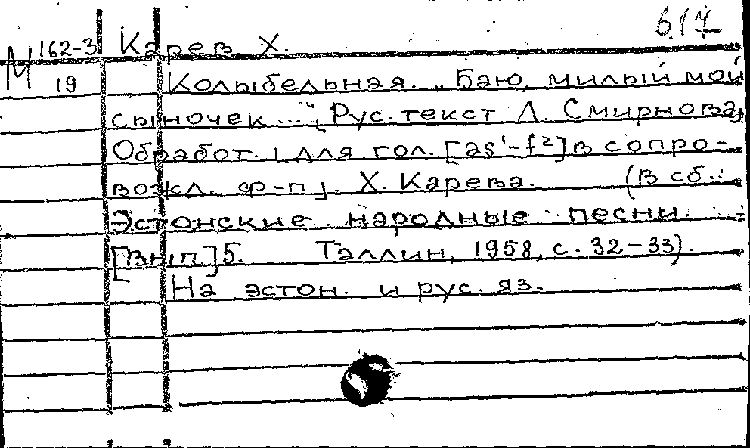 617
М 162-3 Карев Х.
19 Колыбельная. „Баю, милый мой
сыночек..." [Рус. текст Л. Смирнова.
Обработ. для гол. [as¹-f²] в сопро-
вожд. ф-п]. Х. Карева. (В сб.:
Эстонские народные песни.
[Вып.] 5. Таллин, 1958, с. 32-33).
На эстон. и рус. яз.